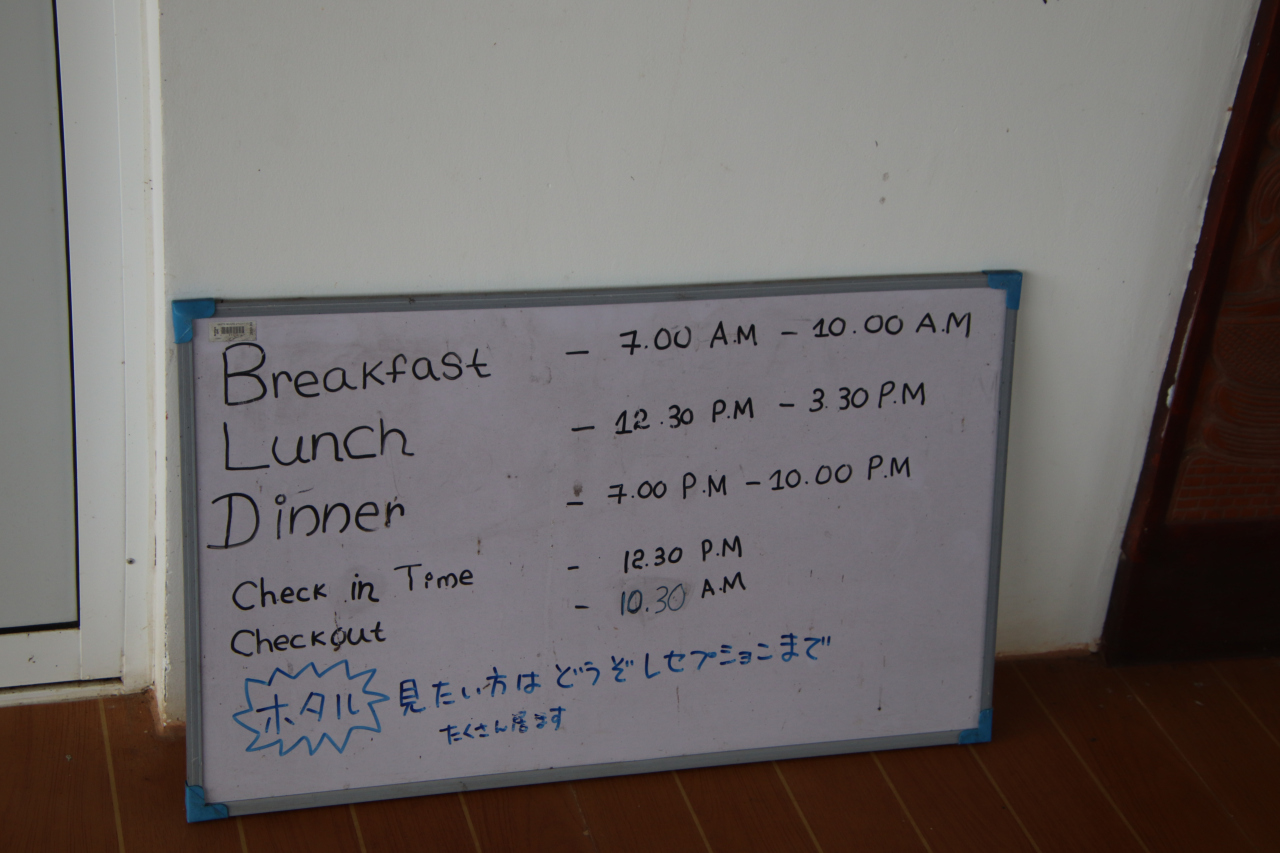 Breakfast - 7.00 A.M - 10.00 A.M
Lunch - 12.30 P.M - 3.30 P.M
Dinner - 7.00 P.M - 10.00 P.M
Check in Time - 12.30 P.M
Checkout - 10.30 A.M
ホタル 見たい方は どうぞ レセプションまで
たくさん居ます